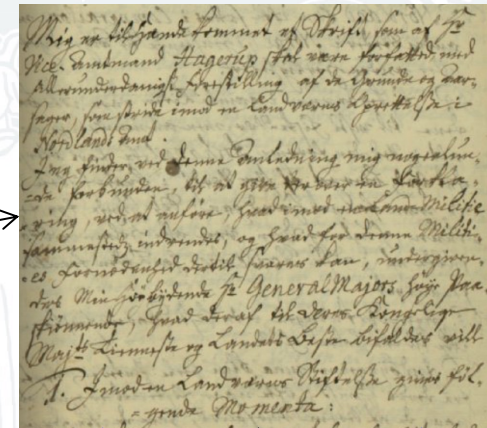 Mig er tilhande kommet et Skrift, som af Hr
Vice-Amtmand Hagerup skal være forfattet, med
Allerunderdanigst Forestilling af de Grunde og Aar-
sager, som stride imod en Landværns Oprettelse i
Nordlands Amt.
Jeg finder, ved denne Anledning mig nogenlun-
de forbunden, til at give herover en Forkla-
ring, ved at anføre, hvad imod Militie
sammesteds indvendes, og hvad for denne Militi-
es Fornødenhed dertil svares kan, undergiven-
des Min Høybydende Hr General Majors høye Paa-
skiønnende, hvad deraf til Deres Kongelige
Majts Tieneste og Landets Beste bifaldes vill
I. Imod en Landværns Stiftelse giøres føl-
gende Momenta: